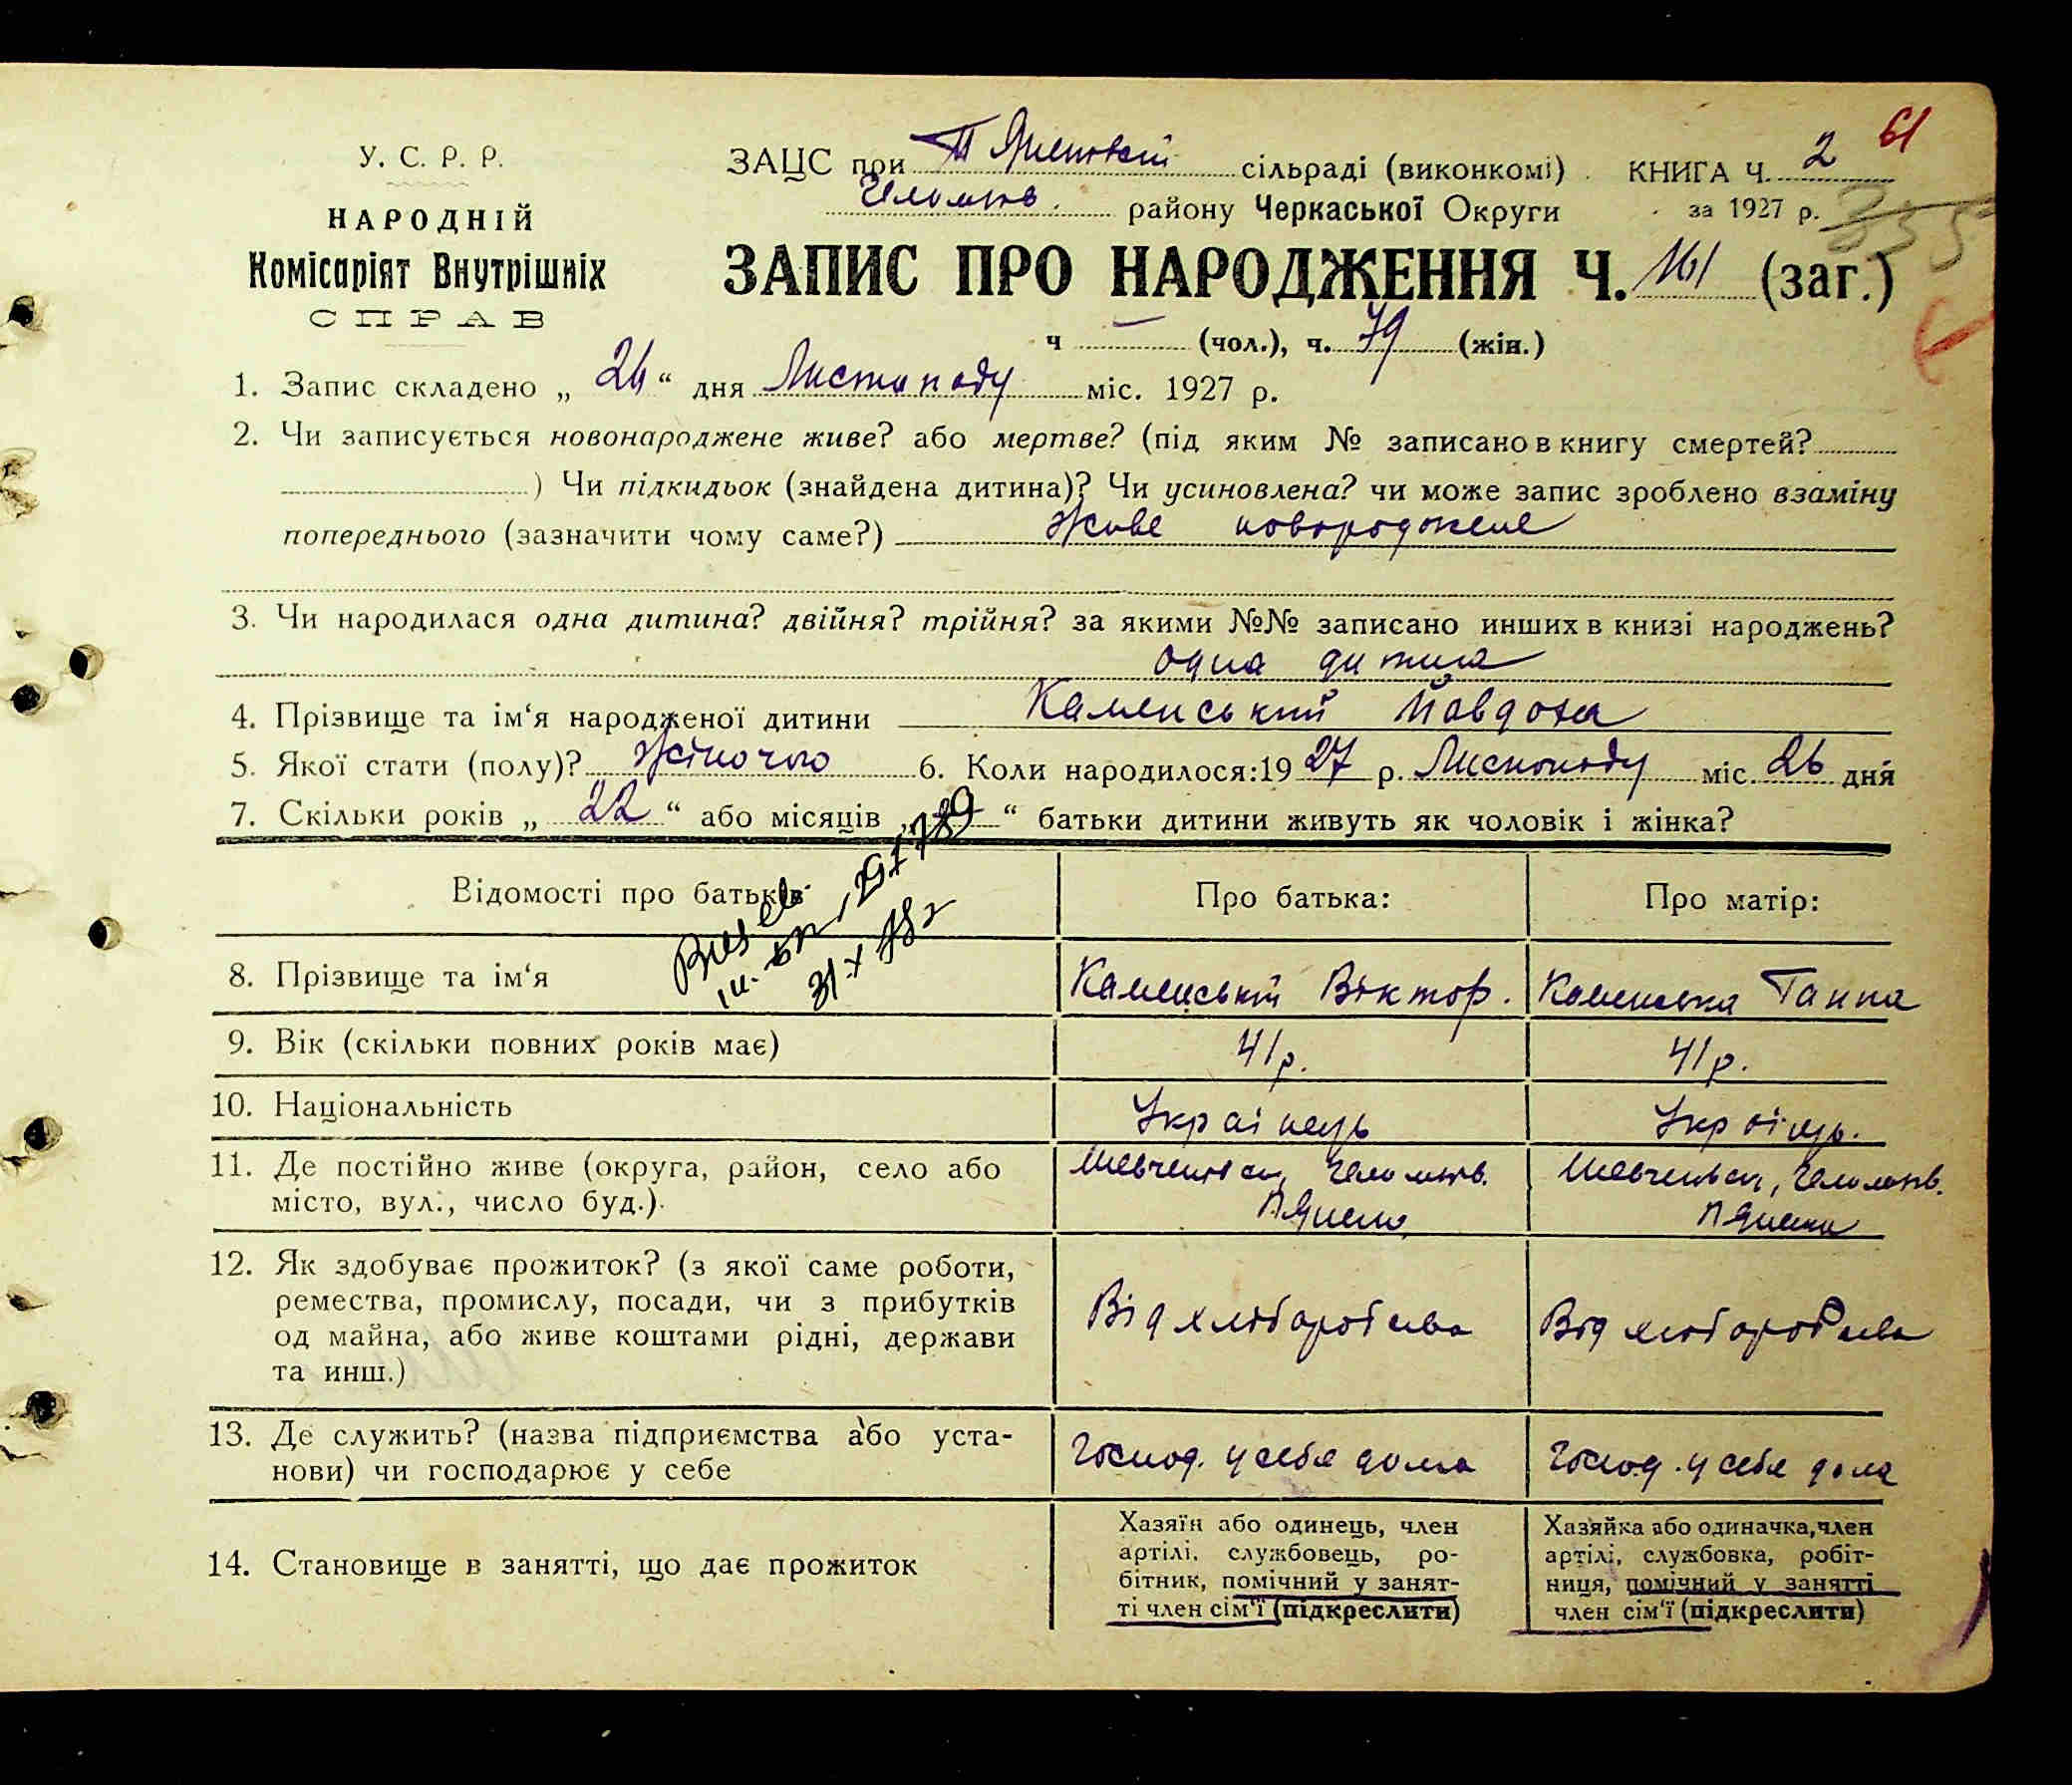 У. С. Р. Р.
НАРОДНІЙ
Комісаріят Внутрішніх
СПРАВ
ЗАЦС при сільраді (виконкомі) КНИГА Ч. 2 61
району Черкаської Округи за 1927 р. 335
ЗАПИС ПРО НАРОДЖЕННЯ Ч. 161 (заг.)
ч — (чол.), ч. 79 (жін.)
1. Запис складено „ 26 “ дня Листопаду міс. 1927 р.
2. Чи записується новонароджене живе? або мертве? (під яким № записано в книгу смертей?
) Чи підкидьок (знайдена дитина)? Чи усиновлена? чи може запис зроблено взаміну
попереднього (зазначити чому саме?) Живе новороджене
3. Чи народилася одна дитина? двійня? трійня? за якими №№ записано инших в книзі народжень?
одна дитина
4. Прізвище та ім‘я народженої дитини Каменський Йовдоха
5. Якої стати (полу)? Жіночого 6. Коли народилося: 1927 р. Листопаду міс. 26 дня
7. Скільки років „ 22 “ або місяців „ “ батьки дитини живуть як чоловік і жінка?
Відомості про батьків Про батька: Про матір:
8. Прізвище та ім‘я Каменський Віктор. Каменська Ганна
9. Вік (скільки повних років має) 41 р. 41 р.
10. Національність Українець Українць.
11. Де постійно живе (округа, район, село або
місто, вул., число буд.).
12. Як здобуває прожиток? (з якої саме роботи,
ремества, промислу, посади, чи з прибутків
од майна, або живе коштами рідні, держави
та инш.)
Від хліборобства Від хліборобства
13. Де служить? (назва підприємства або уста-
нови) чи господарює у себе
Господ. у себе дома Господ. у себе дома
14. Становище в занятті, що дає прожиток
Хазяїн або одинець, член
артілі, службовець, ро-
бітник, помічний у занят-
ті член сім‘ї (підкреслити)
Хазяйка або одиначка, член
артілі, службовка, робіт-
ниця, помічний у занятті
член сім‘ї (підкреслити)